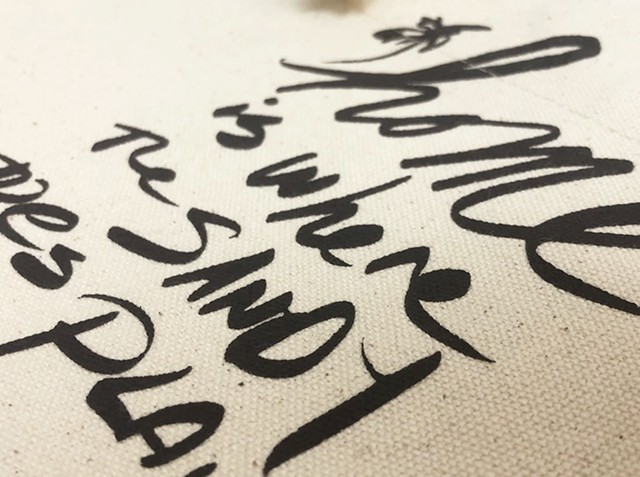 home
is where
The SANDY
oes PLA